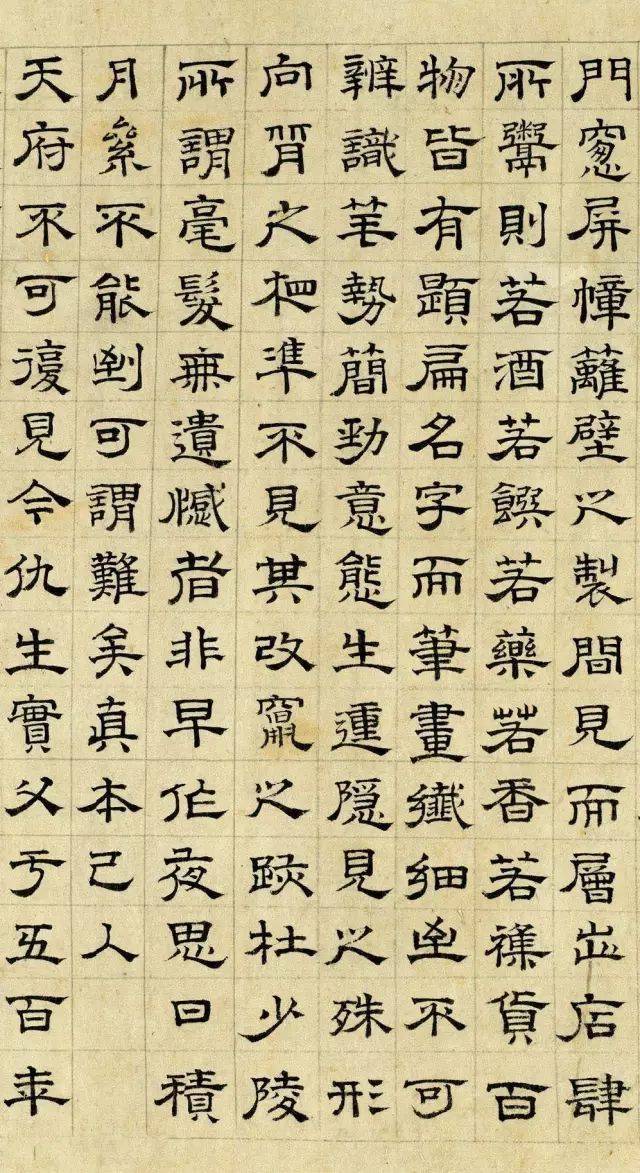 門窻屏幛籬壁之製間見而層出店肆
所鬻則若酒若饌若藥若香若襍貨百
物皆有題扁名字而筆畫纖細至不可
辨識筆勢簡勁意態生動隱見之殊形
向背之相準不見其改竄之跡杜少陵
所謂毫髮無遺憾者非早作夜思日積
月絫不能到可謂難矣真本已入
天府不可復見今仇生實父于五百年